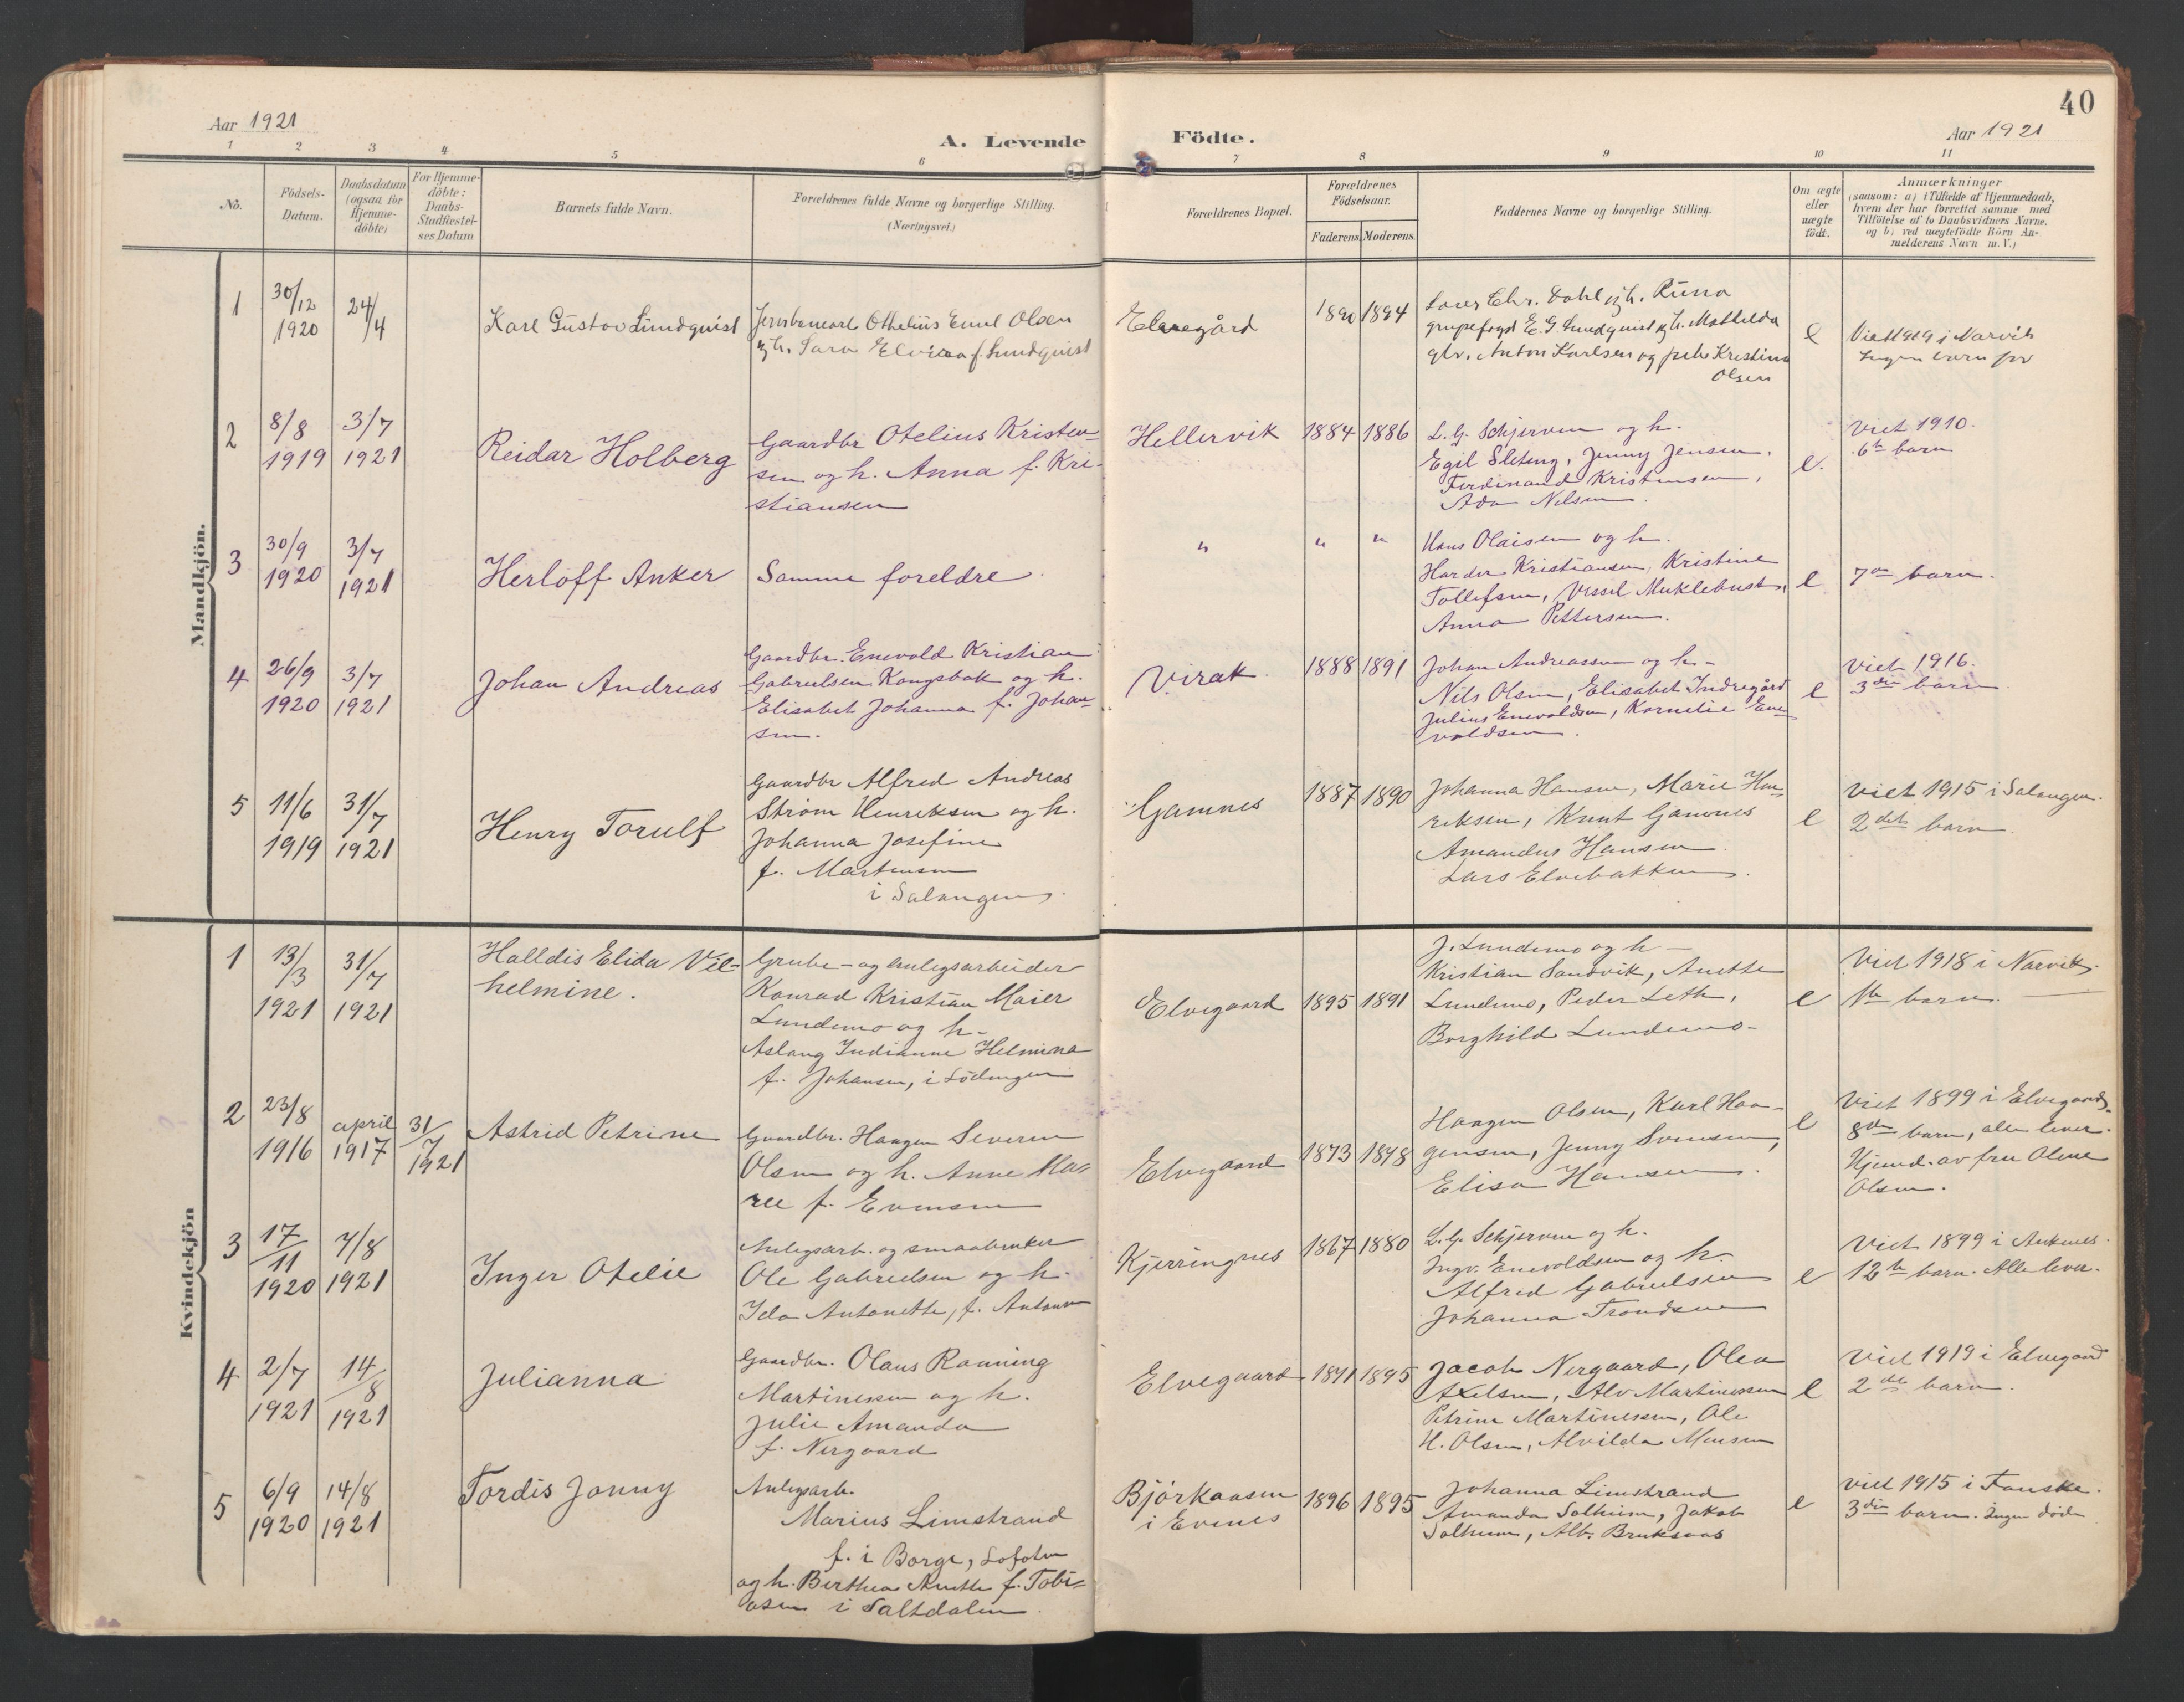 40
Aar 1921
A. Levende Födte.
Aar 1921
1 2 3 4 5 6 7 8 9 10 11
No.
Födsels-
Datum.
Daabsdatum
(ogsaa for
Hjemme-
döbte)
For Hjemme-
döbte:
Daabs-
Stadfæstel-
ses Datum
Barnets fulde Navn.
Forældrenes fulde Navne og borgerlige Stilling.
(Næringsvei.)
Forældrenes Bopæl.
Forældrenes
Födselsaar.
Faderens. Moderens.
Faddernes Navne og borgerlige Stilling.
Om ægte
eller
uægte
födt.
Anmærkninger
(saasom: a) i Tilfælde af Hjemmedaab,
hvem der har forrettet samme med
Tilföielse af to Daabsvidners Navne.
og b) ved uægtefödte Börn An-
melderens Navn m. V.)
Mandkjön.
1
30/12
1920
24/4
Karl Gustav Lundquist
Othelius Emil Olsen
og h. Sara Elvira f. Lundquist
Elvegård
1890 1894
Chr. Dahl og h. Runa
grupefogd E. G. Lundquist og h. Mathilda
Anton Karlsen og Kristina
Olsen
e
Viet 1919 i Narvik
Ingen barn før
2
8/8
1919
3/7
1921
Reidar Holberg
Gaardbr Otelius Kristen-
sen og h. Anna f. Kri-
stiansen
Hellervik
1884 1886
L. G. Schjerven og h.
Egil Sleteng, Jenny Jensen,
Ferdinand Kristensen,
Ada Nilsen.
e.
Viet 1910.
6te barn
3
30/9
1920
3/7
1921
Herloff Anker
Samme foreldre.
" " "
Hans Olaisen og h.
Harder Kristiansen, Kristine
Tollefsen, Vessel Myklebust,
Anna Pettersen.
e
7de barn.
4
26/9
1920
3/7
1921
Johan Andreas
Gaardbr. Enevold Kristian
Gabrielsen Kongsbak og h.
Elisabet Johanna f. Johan-
sen.
Virak
1888 1891
Johan Andreassen og h.
Nils Olsen, Elisabet Indregård
Julius Enevoldsen, Kornelie Ene-
voldsen.
e
Viet 1916.
3die barn.
5
11/6
1919
31/7
1921
Henry Torulf
Gaardbr Alfred Andreas
Strøm Henriksen og h.
Johanna Josefine
f. Martensen
i Salangen.
Gamnes
1887 1890
Johanna Hansen, Marie Hen-
riksen, Knut Gamnes
Amandus Hansen
Lars Elvebakken.
e
Viet 1915 i Salangen.
2det barn.
Kvindekjön
1
13/3
1921
31/7
1921
Halldis Elida Vil-
helmine.
Grube- og anlegsarbeider
Konrad Kristian Maier
Lundemo og h.
Aslaug Indianne Helmina
f. Johansen, i Lödingen
Elvegaard
1895 1891
J. Lundemo og h -
Kristian Sandvik, Anette
Lundemo, Peder Leth,
Borghild Lundemo.
e
Viet 1918 i Narvik.
1te barn.
2
23/8
1916
april
1917
31/7
1921
Astrid Petrine
Gaardbr. Haagen Severin
Olsen og h. Anne Ma-
rie f. Evensen
Elvegaard
1873 1878
Haagen Olsen, Karl Haa-
gensen, Jenny Svensen,
Elisa Hansen.
e
Viet 1899 i Elvegaard.
8de barn, alle lever.
Hjemd. av fru Oline
Olsen.
3
17/11
1920
7/8
1921
Inger Otelie
Anlegsarb. og smaabruker
Ole Gabrielsen og h.
Ida Antonette, f. Antonsen
Kjerringnes
1867 1880
L. G. Schjerven og h.
Ingv. Enevoldsen og h.
Alfred Gabrielsen
Johanna Trondsen
e
Viet 1899 i Ankenes.
12te barn. Alle lever.
4
2/7
1921
14/8
1921
Julianna
Gaardbr. Olaus Rønning
Martinessen og h.
Julie Amanda
f. Nergaard
Elvegaard
1891 1895
Jacob Nergaard, Olea
Axelsen, Alv Martinessen
Petrine Martinessen, Ole
H. Olsen, Alvilda Monsen
e
Viet 1919 i Elvegaard
2det barn.
5
6/9
1920
14/8
1921
Tordis Jonny
Anlegsarb.
Marius Limstrand
f. i Borge, Lofoten
og h. Berthea Anette f. Tobi-
asen i Saltdalen.
Bjørkaasen
i Evenes
1896 1895
Johanna Limstrand
Amanda Solheim, Jakob
Solheim, Alb. Bruksaas
e
Viet 1915 i Fauske.
3die barn. Ingen døde